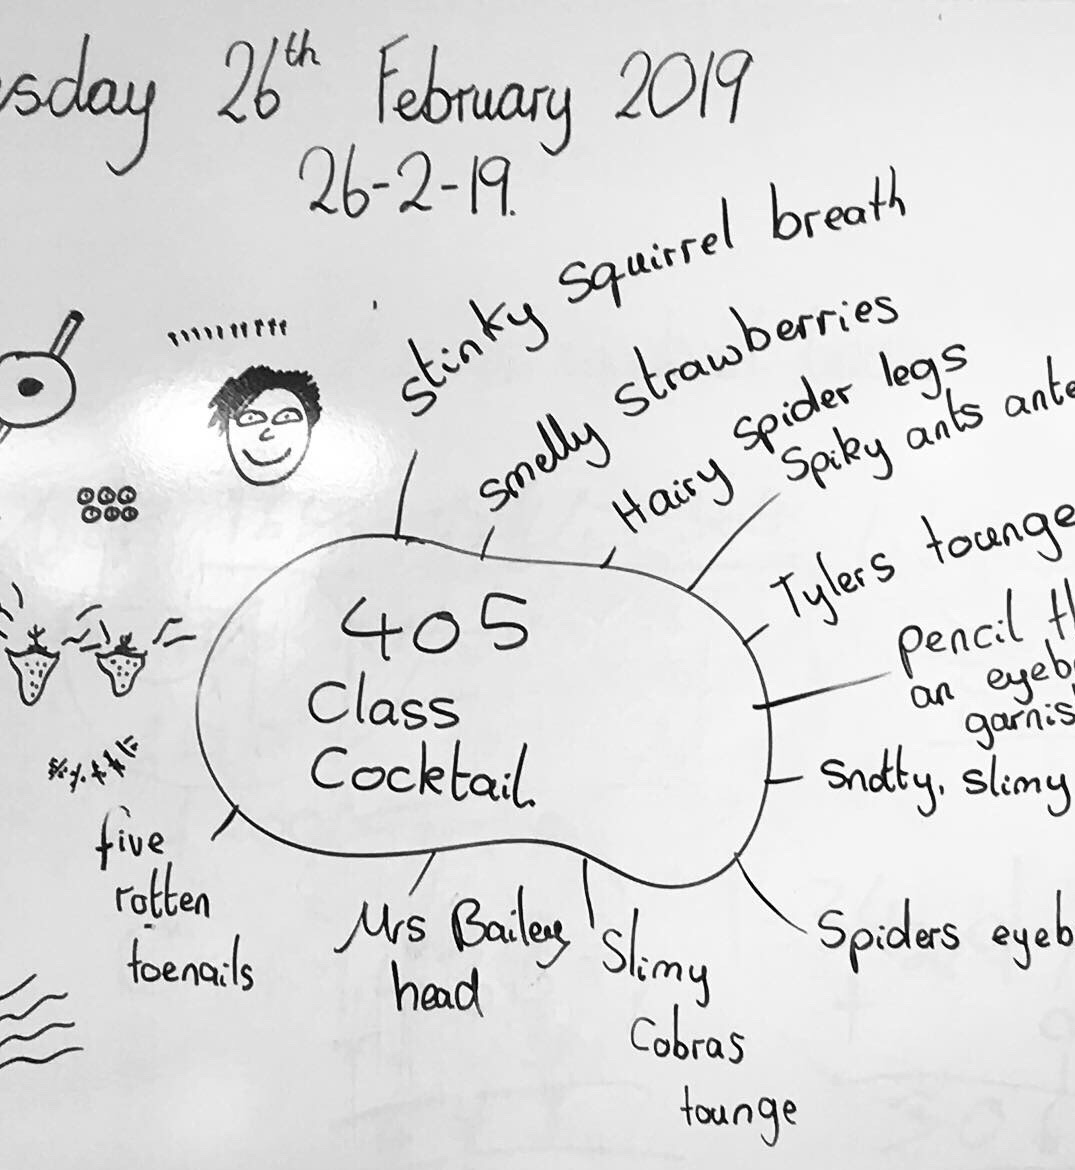 sday 26th February 2019
26-2-19.
stinky squirrel breath
smelly strawberries
Hairy spider legs
Spiky ants ante
Tylers tounge
pencil th
an eyeb
garnis
Snotty, slimy
Spiders eyeb
405
Class
Cocktail.
five
rotten
toenails
Mrs Baileys
head
Slimy
Cobras
tounge